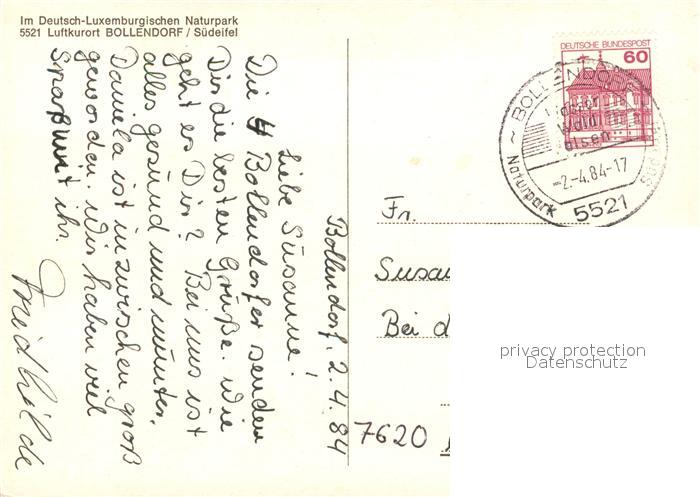 Im Deutsch-Luxemburgischen Naturpark
5521 Luftkurort BOLLENDORF / Südeifel
Bollendorf, 2.4.84
Liebe Susanne!
Die 4 Bollendorfer senden
Dir die besten Grüße. Wie
geht es Dir? Bei uns ist
alles gesund und munter.
Daniela ist inzwischen groß
geworden. Wir haben viel
Spaß mit ihr.
Friedhilde
DEUTSCHE BUNDESPOST
60
~ BOLLENDORF
Wald
-2.-4.84-17
Naturpark
5521
Fr.
Susan
Bei d
7620
privacy protection
Datenschutz